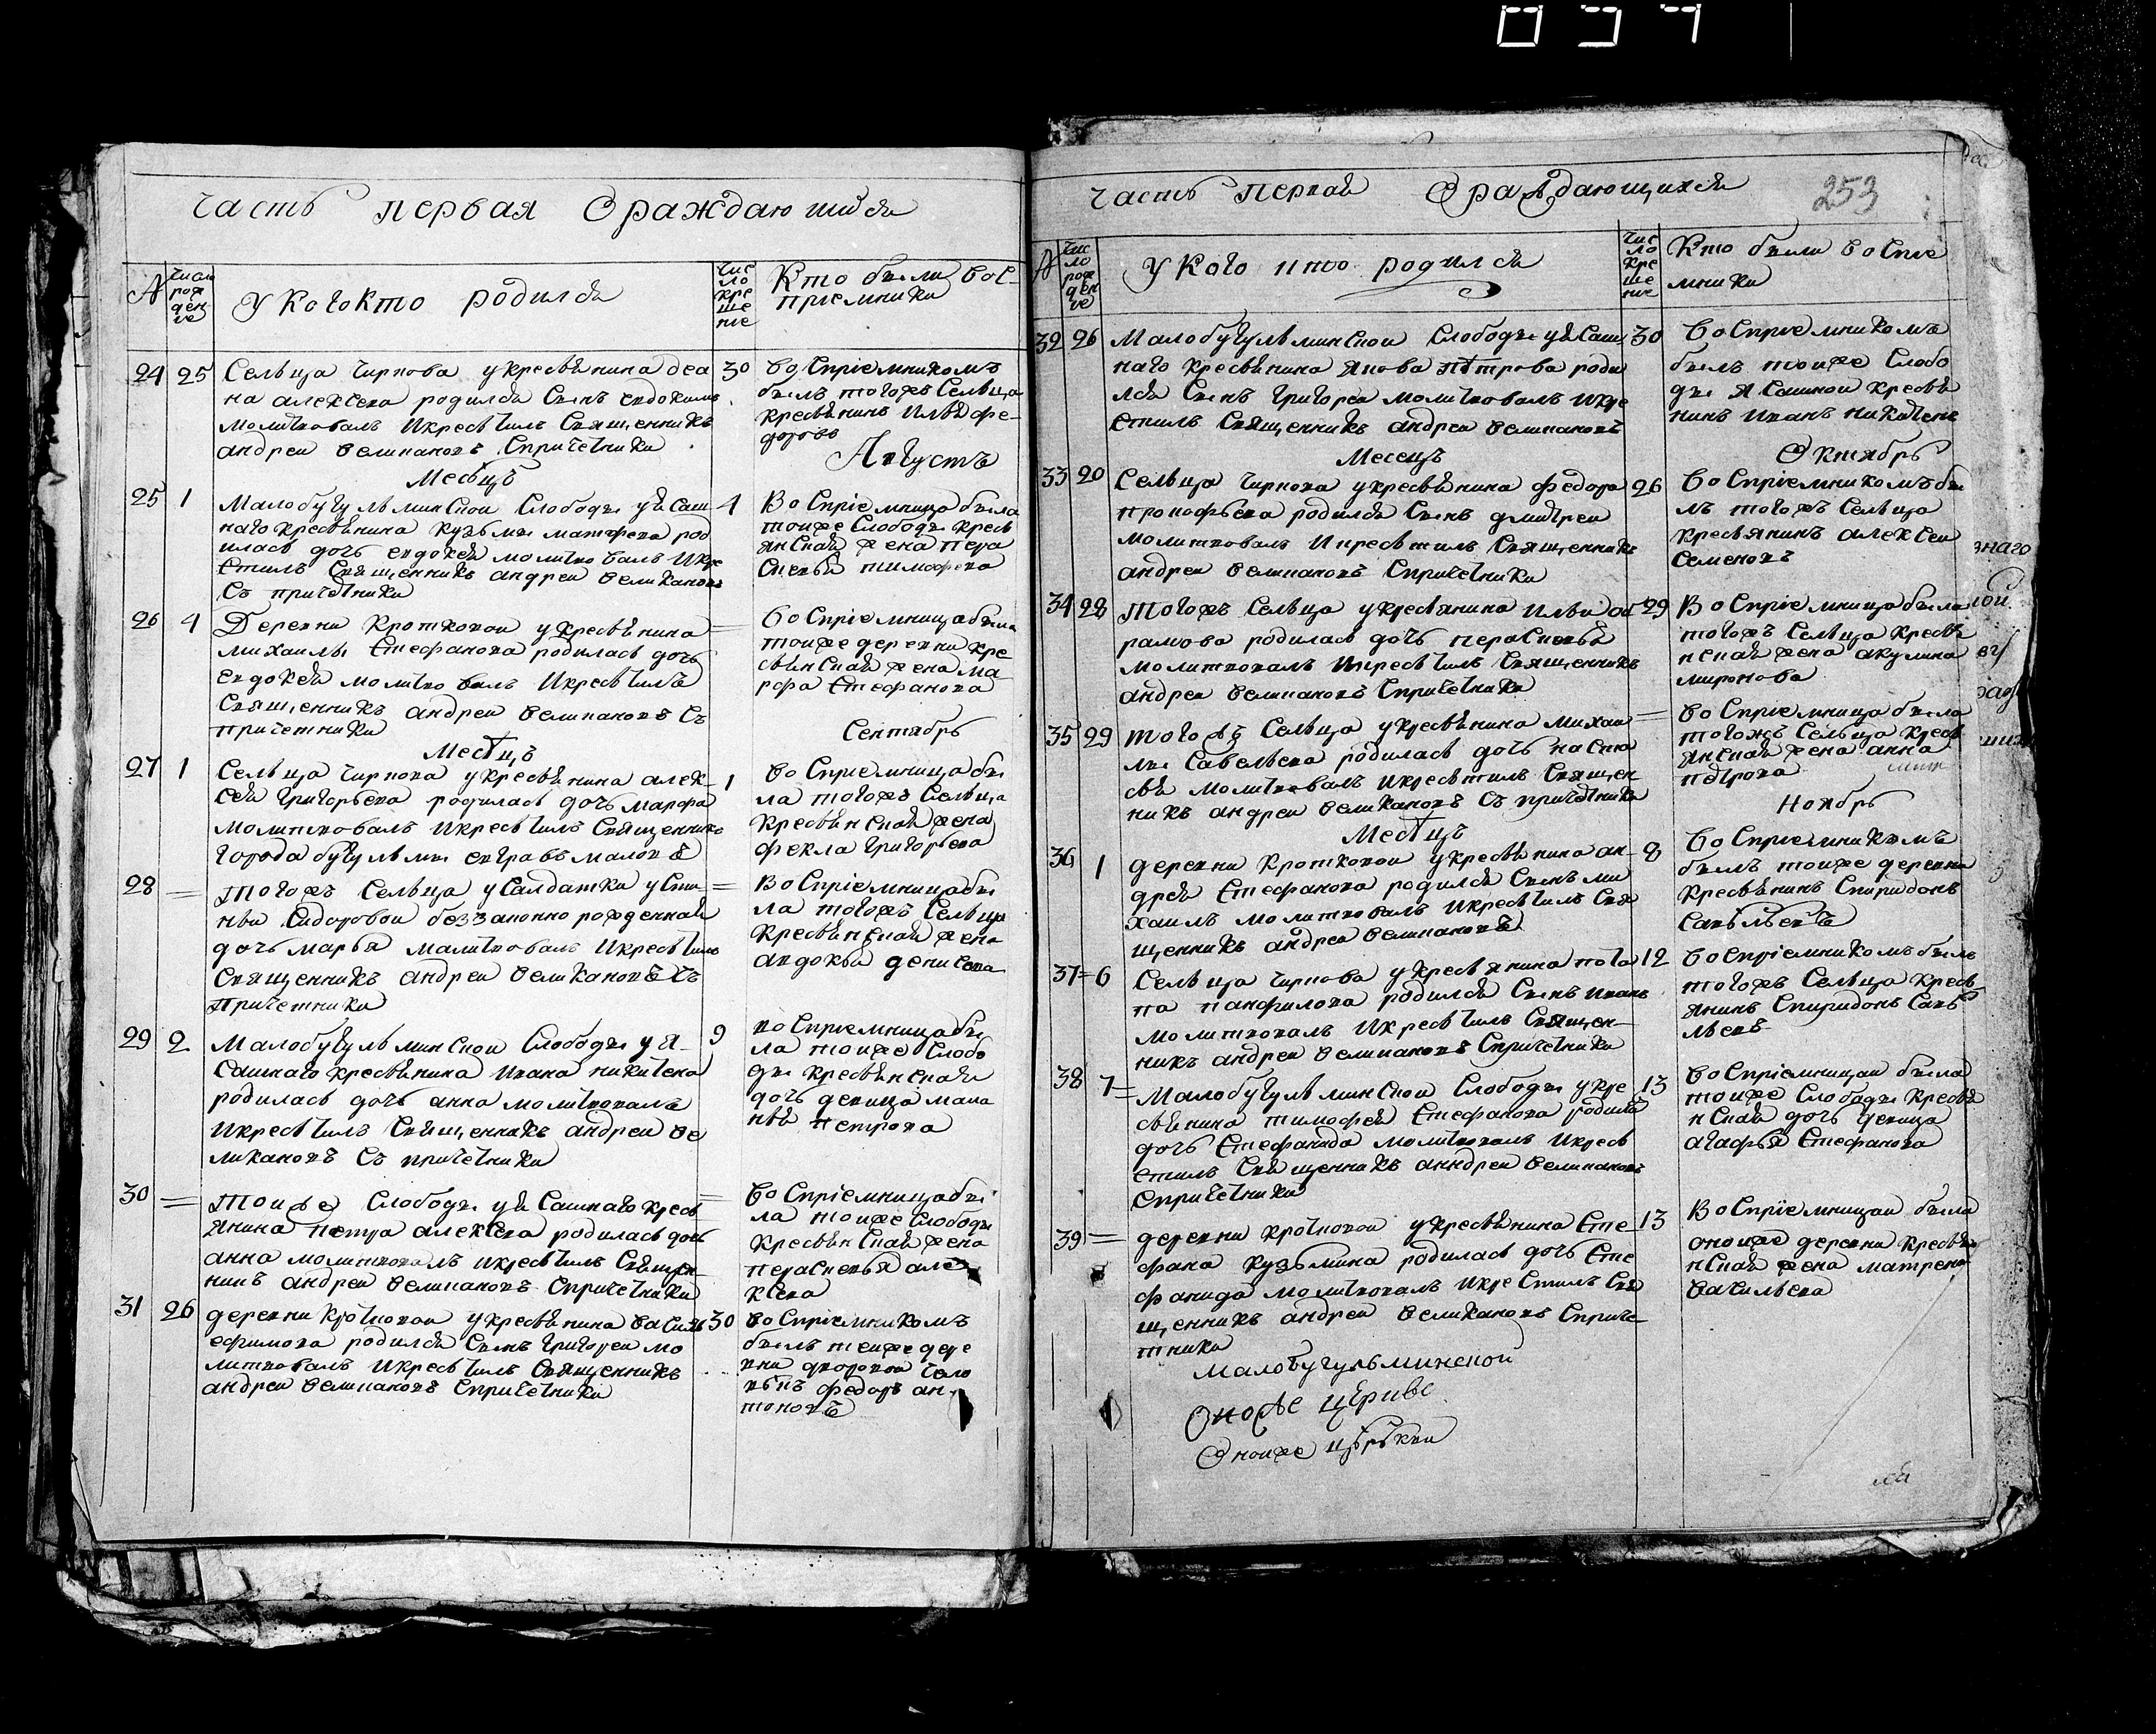 Часть первая О раждаюшися
№
число рож ден ие
У Кого Кто родился
чис ло кре ще ние
Кто были вос-
приемники
24 25 Сельца Чиркова укресьянина деа
на алексева родился Сынъ евдокимъ
молитвовалъ Икрестилъ Священникъ
андреи великановъ Спричетники
30 восприемникомъ
былъ тогожъ Сельца
кресьянинъ Илья фе-
дорово
Месецъ Августъ
25 1 Малобугульминской Слободы уясаш
наго кресьянина Кузьмы матфева род
илась дочь евдокея молитвовалъ Икре
стилъ Священникъ андреи великановъ
Съ причетники
4 Восприемница была
тоиже Слободы кресь
янская жена пера
сковья тимофева
26 4 Деревни Кротковои укресьянина
михаилы Стефанова родилась дочь
евдокея молитвовалъ Икрестилъ
Священникъ андреи великановъ Съ
причетники
= восприемница была
тоиже деревни кре
сьянская жена ма-
рфа Стефанова
Месецъ Сентябрь
27 1 Сельца Чиркова укресьянина алек-
сея Григорьева родилась дочь марфа
молитвовалъ Икрестилъ Священникъ
города бугульмы евграфъ маловъ
1 восприемница бы
ла тогожъ Сельца
кресьянская жена
фекла Григорьева
28 = Тогожъ Сельца уСалдатки уСти-
ньи Сидоровои беззаконно рожденная
дочь марья малитвовалъ Икрестилъ
Священникъ андреи великановъ Съ
Причетники
= восприемница бы
ла тогожъ Сельца
кресьянская жена
авдокья денисева
29 2 Малобугульминскои Слободы у я-
Сашнаго кресьянина Ивана никитева
родилась дочь анна молитвовалъ
Икрестилъ Священникъ андреи ве
ликановъ Съ причетники
9 восприемница бы
ла тоиже Слобо
ды кресьянская
дочь девица мала
нья петрова
30 = Тоиже Слободы уясашнаго кресь
янина петра алексева родилась дочь
анна молитвовалъ икрестилъ Священ
никъ андреи великановъ Спричетники
= восприемница бы
ла тоиже Слободы
кресьянская жена
перасковья алек
сева
31 26 деревни Кротковои укресьянина василья
ефимова родился Сынъ григореи мо
литвовалъ Икрестилъ Священникъ
андреи великановъ Спричетники
30 восприемникомъ
былъ тоиже дере
вни дворовои чело
векъ федоръ ан-
тоновъ
Часть первоя О раждающихся
253
№
чис ло рож ден ие
У Кого кто родился
чис ло кре ще ние
Кто были воспие
мники
32 26 Малобугульминской Слободы уясаш
наго кресьянина якова петрова роди
лся Сынъ григореи молитвовалъ Икре
стилъ Священникъ андреи великановъ
30 восприемникомъ
былъ тоиже Слобо
ды ясашнои кресья
нинъ Иванъ никитевъ
Месецъ Октябрь
33 20 Сельца Чиркова укресьянина федора
прокофьева родился Сынъ дмитреи
молитвовалъ Икрестилъ Священникъ
андреи великановъ Спричетники
26 восприемникомъ бы
лъ тогожъ Сельца
кресьянинъ алексеи
Семеновъ
34 28 Тогожъ Сельца укресьянина ильи аб
рамова родилась дочь перасковья
молитвовалъ Икрестилъ Священникъ
андреи великановъ Спричетники
29 Восприемница была
тогожъ Сельца кресья
нская жена акулина
миронова
35 29 Тогожъ Сельца укресьянина михаи
лы Савельева родилась дочь наста
сья молитвовалъ икрестилъ Священ
никъ андреи великановъ Съ причетники
= восприемница была
тогожъ Сельца кресь
янская жена анна
петрова
Месецъ Ноябрь
36 1 деревни Кротковои укресьянина ан-
дрея Стефанова родился Сынъ ми
хаилъ молитвовалъ Икрестилъ Свя
щенникъ андреи великановъ
8 восприемникомъ
былъ тоиже деревни
кресьянинъ Спиридонъ
Савельевъ
37 = 6 Сельца Чиркова укресьянина пота
па панфилова родился Сынъ Иванъ
молитвовалъ Икрестилъ Священ-
никъ андреи великановъ Спричетники
12 восприемникомъ былъ
тогожъ Сельца кресь
янинъ Спиридонъ Саве
льевъ
38 7 = Малобугульминской Слободы укре
сьянина тимофея Стефанова родила
дочь Стефанида молитвовалъ Икрес
стилъ Священникъ анндреи великановъ
Спричетники
13 восприемницаи была
тоиже Слободы кресья
нская дочь девица
агафья Стефанова
39 = деревни кротковои укресьянина Сте
фана Кузьмина родилась дочь Сте
фанида молитвовалъ Икрестилъ Свя
щенникъ андреи великановъ Сприче-
тники
13 Восприемницаи была
оноиже деревни кресья
нская жена матрена
васильева
Малобугульминской
Оноже церкве
Оноиже церькви